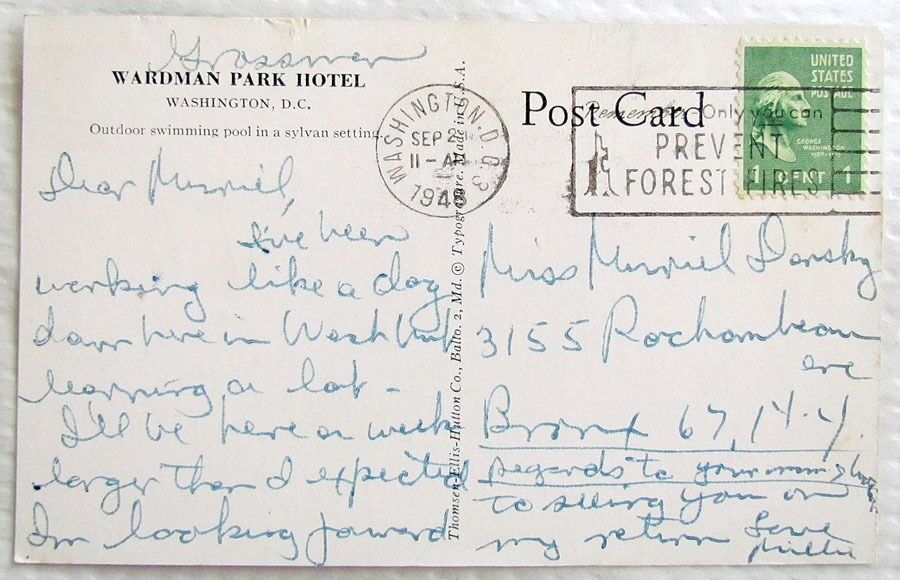 Grossman
WARDMAN PARK HOTEL
WASHINGTON, D.C.
Outdoor swimming pool in a sylvan setting.
Dear Murriel,
I've been
working like a dog
down here in Wash but
learning a lot -
I'll be here a week
longer than I expected
I'm looking forward
Thomsen-Ellis-Hutton Co., Balto. 2, Md. © Typogravure. Made in U.S.A.
Post Card
WASHINGTON, D.C.
SEP 2
11 - AM
1948
3
Remember Only you can
PREVENT
FOREST FIRES
UNITED
STATES
POSTAGE
GEORGE
WASHINGTON
1 CENT 1
Miss Murriel Dansky
3155 Rochambeau
ave
Bronx 67, N.Y.
regards to your mom &
to seeing you on
my return Love
Millie